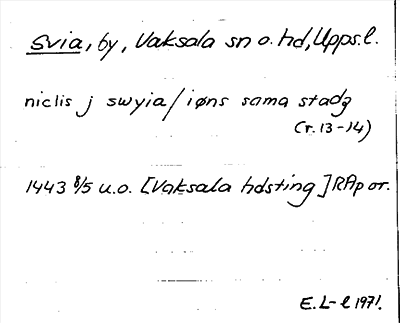 Svia, by, Vaksala sn o. hd, Upps. l.
niclis j swyia / iøns sama stadz
(r. 13-14)
1443 8/5 u.o. [Vaksala hdsting] RAp or.
E. L-l 1971.